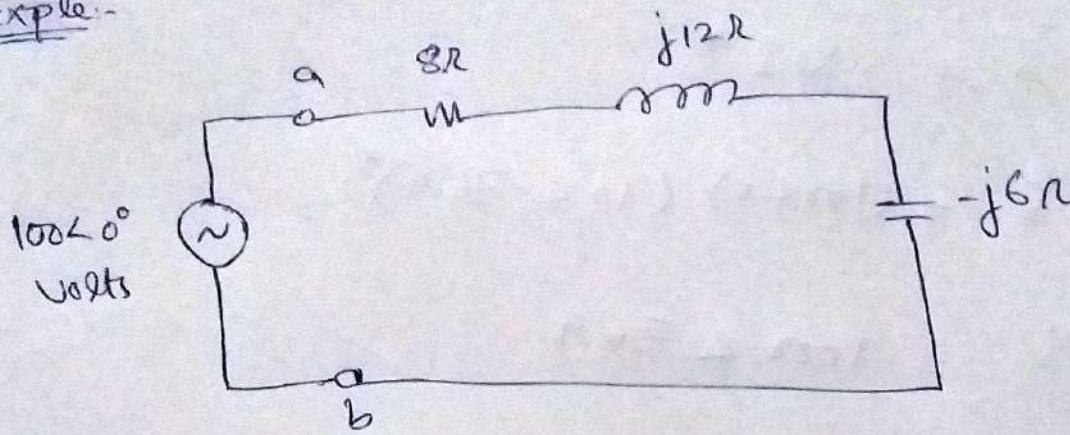 Exple:-
a
8Ω
j12Ω
100∠0°
volts
-j6Ω
b